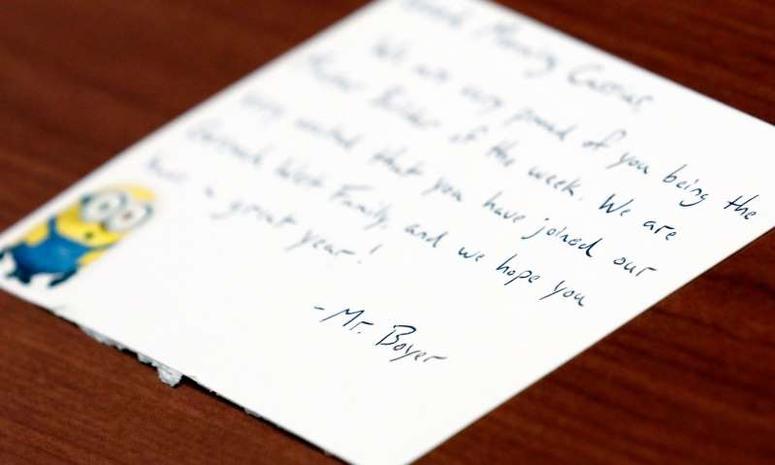 Good Morning Cassie
We are very proud of you being the
of the week. We are
very excited that you have joined our
West Family, and we hope you
have a great year!
-Mr. Boyer